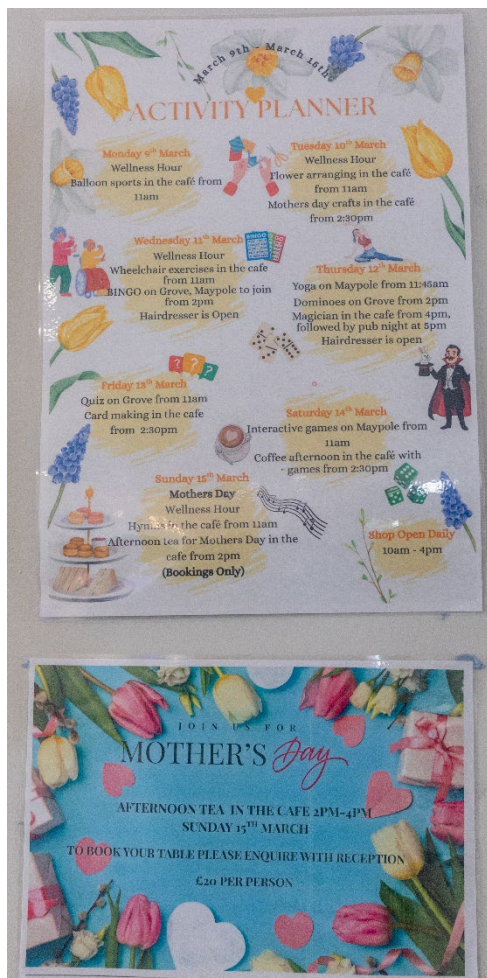 March 9th - March 15th
ACTIVITY PLANNER
Monday 9th March
Wellness Hour
Balloon sports in the café from
11am
Tuesday 10th March
Wellness Hour
Flower arranging in the café
from 11am
Mothers day crafts in the café
from 2:30pm
Wednesday 11th March
Wellness Hour
Wheelchair exercises in the cafe
from 11am
BINGO on Grove, Maypole to join
from 2pm
Hairdresser is Open
BINGO
Thursday 12th March
Yoga on Maypole from 11:45am
Dominoes on Grove from 2pm
Magician in the cafe from 4pm,
followed by pub night at 5pm
Hairdresser is open
Friday 13th March
Quiz on Grove from 11am
Card making in the cafe
from 2:30pm
? ? ?
Saturday 14th March
Interactive games on Maypole from
11am
Coffee afternoon in the café with
games from 2:30pm
Sunday 15th March
Mothers Day
Wellness Hour
Hymns in the café from 11am
Afternoon tea for Mothers Day in the
cafe from 2pm
(Bookings Only)
Shop Open Daily
10am - 4pm
JOIN US FOR
MOTHER'S Day
AFTERNOON TEA IN THE CAFE 2PM-4PM
SUNDAY 15TH MARCH
TO BOOK YOUR TABLE PLEASE ENQUIRE WITH RECEPTION
£20 PER PERSON